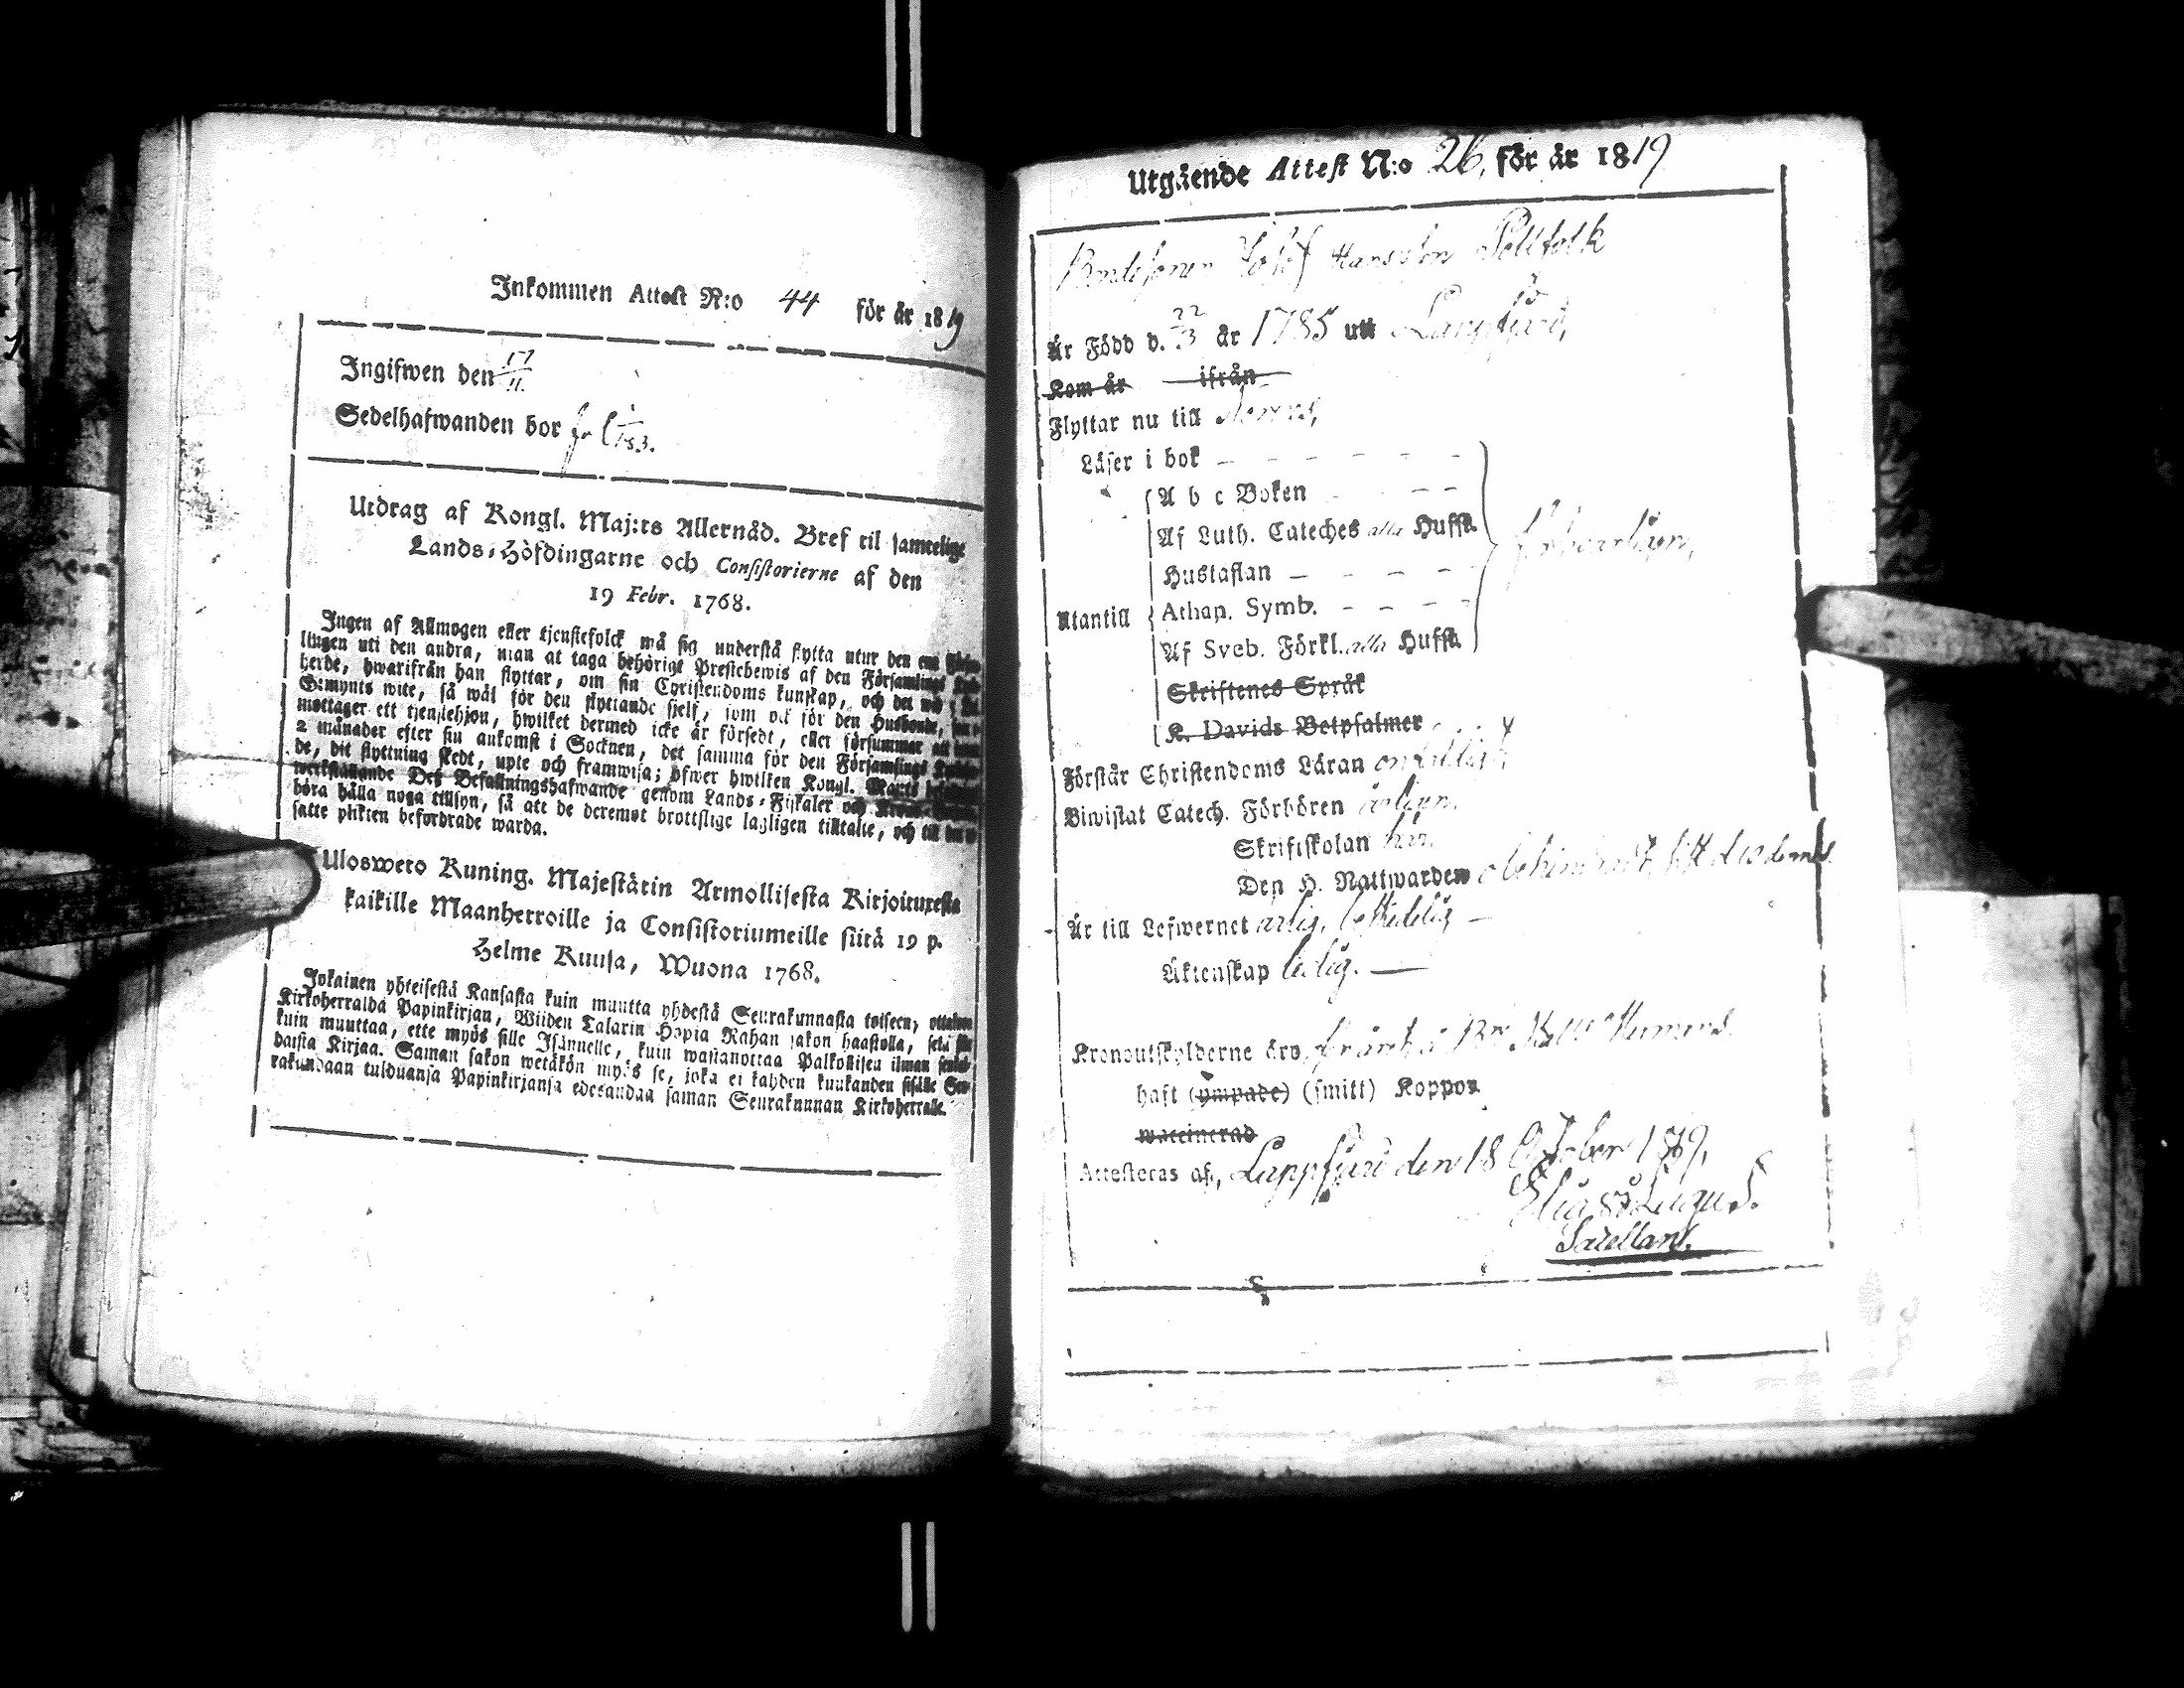 Inkommen Attest N:o 44 för år 1819
Ingifwen den 17/11.
Sedelhafwanden bor fol 183.
Utdrag af Kongl. Maj:ts Allernåd. Bref til samtelige
Lands-Höfdingarne och Consistorierne af den
19 Febr. 1768.
Ingen af Allmogen eller tjenstefolck må sig understå flytta utur den ena
lingen uti den andra, utan at taga behörigt Prestebewis af den Församlings
herde, hwarifrån han flyttar, om sin Christendoms kunskap, och det wid
Gemynts wite, så wäl för den flyttande sjelf, som ock för den Husbonde,
mottager ett tjenstehjon, hwilket dermed icke är försedt, eller försummar att
2 månader efter sin ankomst i Socknen, det samma för den Församlings
de, dit flyttning skedt, upte och framwisa; öfwer hwilken Kongl. Maj:ts
werkställande Dess Befallningshafwande genom Lands-Fiskaler och
böra hålla noga tillsyn, så att de deremot brottslige lagligen tilltalte, och till
satte plikten befordrade warda.
Ulosweto Kuning. Majestätin Armollisesta Kirjoituxesta
kaikille Maanherroille ja Consistoriumeille siitä 19 p.
Helme Kuusa, Wuona 1768.
Jokainen yhteisestä Kansasta kuin muutta yhdestä Seurakunnasta toiseen, ottakon
Kirkoherralda Papinkirjan, Wiiden Talarin Hopia Rahan sakon haastolla, sekä
kuin muuttaa, ette myös sille Isännelle, kuin wastanottaa Palkollisen ilman
daista Kirjaa. Saman sakon wetäkön myös se, joka ei kahden kuukauden sisälle Seu-
rakundaan tulduansa Papinkirjansa edesandaa saman Seurakunnan Kirkoherralle.
Utgående Attest N:o 26, för år 1819
Bondesonen Josef Hansson Sollfolk
Är Född d. 22/3 år 1785 uti Lappfjärd,
Kom år ifrån
Flyttar nu till
Läser i bok
A b c Boken
Af Luth. Cateches alla Hufst.
Hustaflan
Utantill Athan. Symb.
Af Sveb. Förkl. alla Hufst.
Skriftenes Språk
K. Davids Botpsalmer
Förstår Christendoms Läran
Biwistat Catech. Förhören årligen.
Skriftskolan här.
Den H. Nattwarden obehindradt
Är till Lefwernet ärlig, beskedlig
Äktenskap ledig.
Kronoutskylderne äro
haft (ympade) (smitt) Koppor
waccinerad
Attesteras af, Lappfjärd den 18 October 1819,
Elias Lagus.
Sacellan.